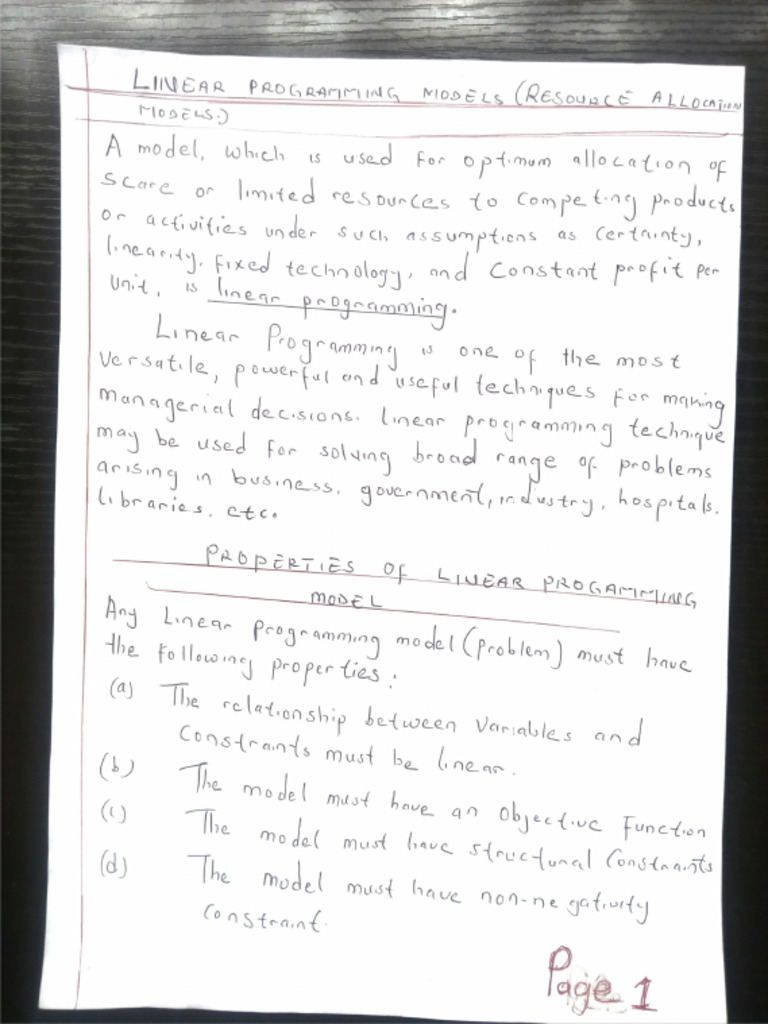 LINEAR PROGRAMMING MODELS (RESOURCE ALLOCATION
MODELS.)
A model, which is used for optimum allocation of
scare or limited resources to competing products
or activities under such assumptions as certainty,
linearity, fixed technology, and constant profit per
unit, is linear programming.
Linear Programming is one of the most
versatile, powerful and useful techniques for making
managerial decisions. linear programming technique
may be used for solving broad range of problems
arising in business, government, industry, hospitals,
libraries, etc.
PROPERTIES OF LINEAR PROGAMMING
MODEL
Any Linear programming model (problem) must have
the following properties:
(a) The relationship between variables and
constraints must be linear.
(b) The model must have an objective function
(c) The model must have structural constraints
(d) The model must have non-negativity
constraint.
Page 1